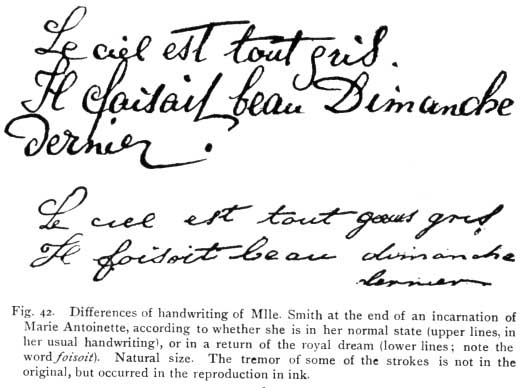 Le ciel est tout gris.
Il faisait beau Dimanche
dernier.
Le ciel est tout gris
Il foisoit beau dimanche
dernier
Fig. 42. Differences of handwriting of Mlle. Smith at the end of an incarnation of
Marie Antoinette, according to whether she is in her normal state (upper lines, in
her usual handwriting), or in a return of the royal dream (lower lines; note the
word foisoit). Natural size. The tremor of some of the strokes is not in the
original, but occurred in the reproduction in ink.